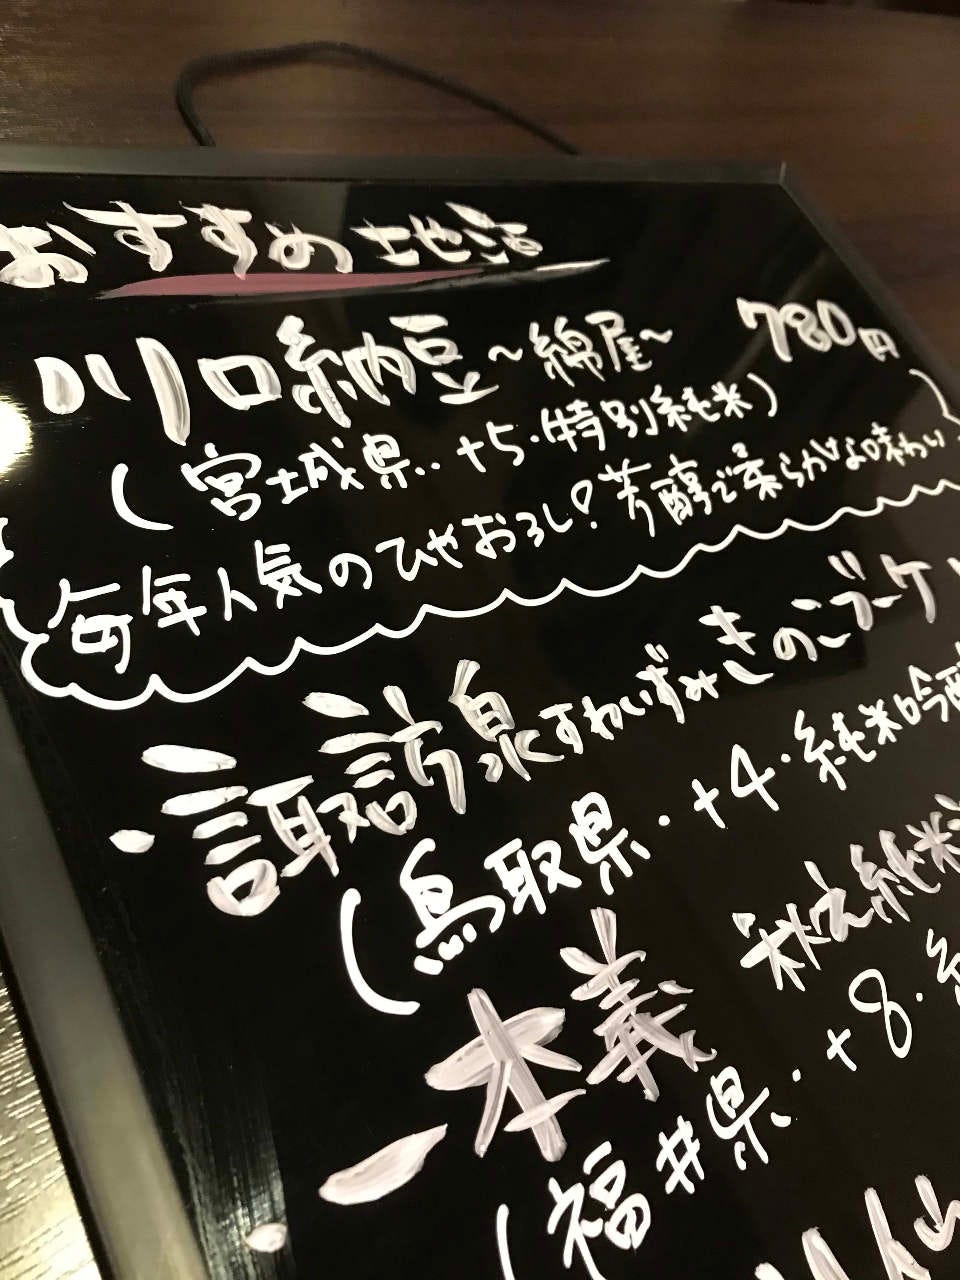 おすすめ地酒
川口納豆～綿屋～ 780円
(宮城県・+5・特別純米)
毎年人気のひやおろし!芳醇で柔らかな味わい
・諏訪泉すわいずみきのこブーケ
(鳥取県・+4・純米吟醸
一本義 秋之純米
(福井県・+8・純
仙